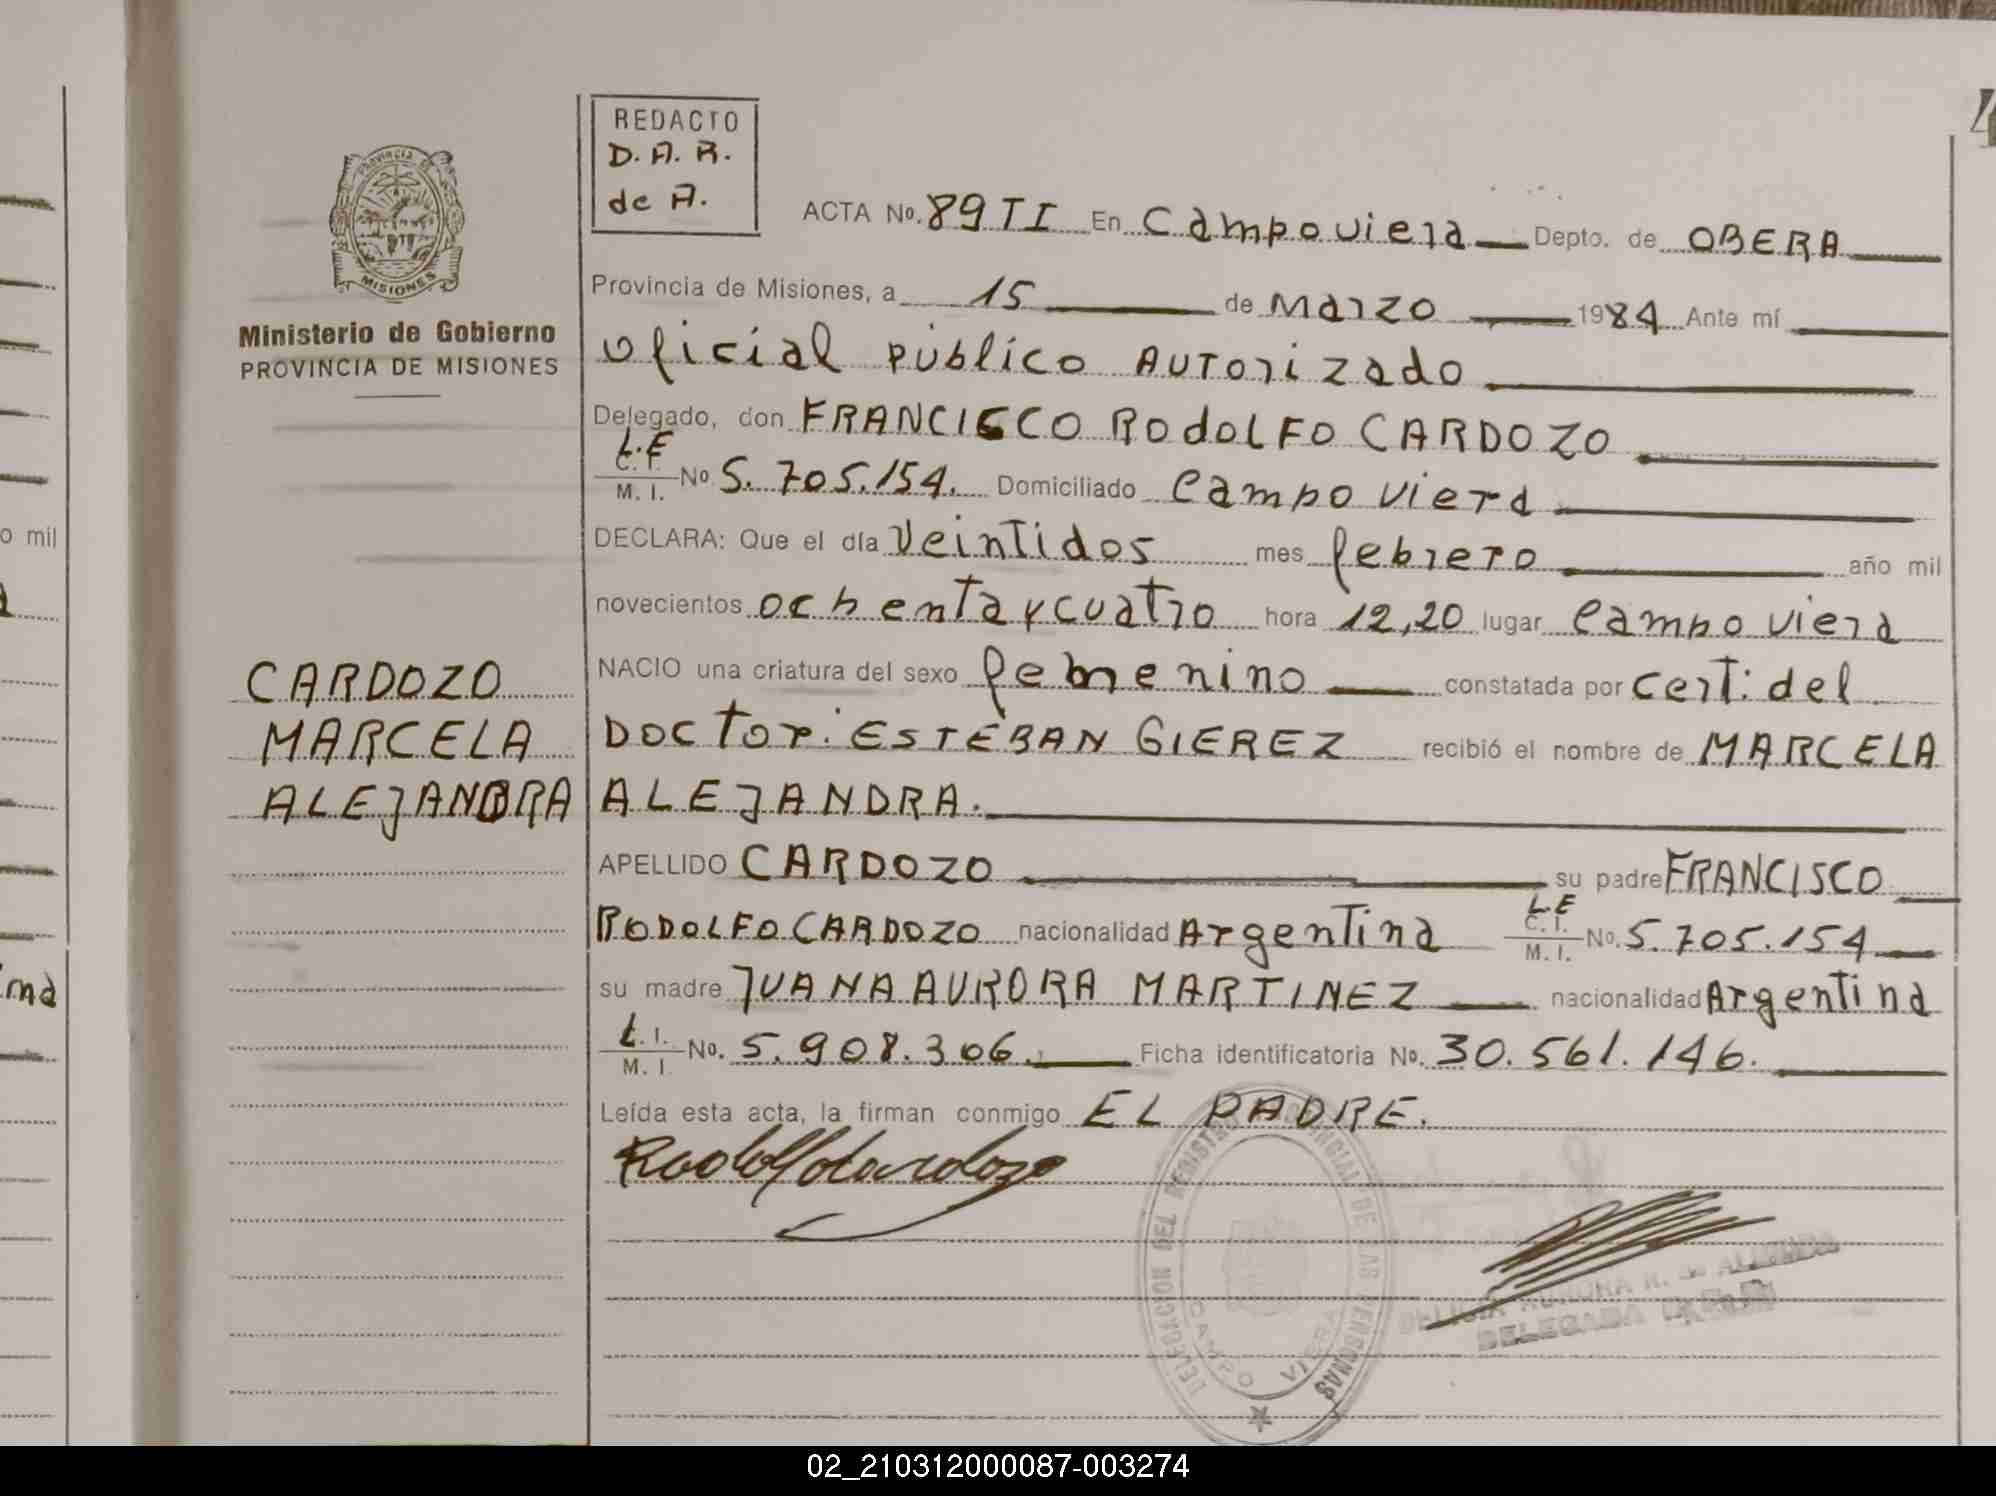 REDACTO
D. A. R.
de A.
PROVINCIA DE
MISIONES
Ministerio de Gobierno
PROVINCIA DE MISIONES
ACTA No. 89 TI En Campo viera Depto. de OBERA
Provincia de Misiones, a 15 de Marzo 1984 Ante mí
oficial público AUTorizado
Delegado, don FRANCISCO RodoLFO CARDOZO
L.E
C. I.
M. I. No 5.705.154. Domiciliado Campo viera
DECLARA: Que el día veintidos mes febrero año mil
novecientos ochenta y cuatro hora 12,20 lugar Campo viera
NACIO una criatura del sexo femenino constatada por cert: del
CARDOZO
MARCELA
ALEJANDRA
DOCTor: ESTEBAN GIEREZ recibió el nombre de MARCELA
ALEJANDRA.
APELLIDO CARDOZO su padre FRANCISCO
RODOLFO CARDOZO nacionalidad Argentina L.E C. I. M. I. No. 5.705.154
su madre JUANA AURORA MARTINEZ nacionalidad Argentina
L. I.
M. I. No. 5.908.306. Ficha identificatoria No. 30.561.146.
Leída esta acta, la firman conmigo EL PADRE.
Rodolfo Cardozo
DELEGACION DEL REGISTRO PROVINCIAL DE LAS PERSONAS
CAMPO VIERA
DELEGADA
o mil
ina
02_210312000087-003274